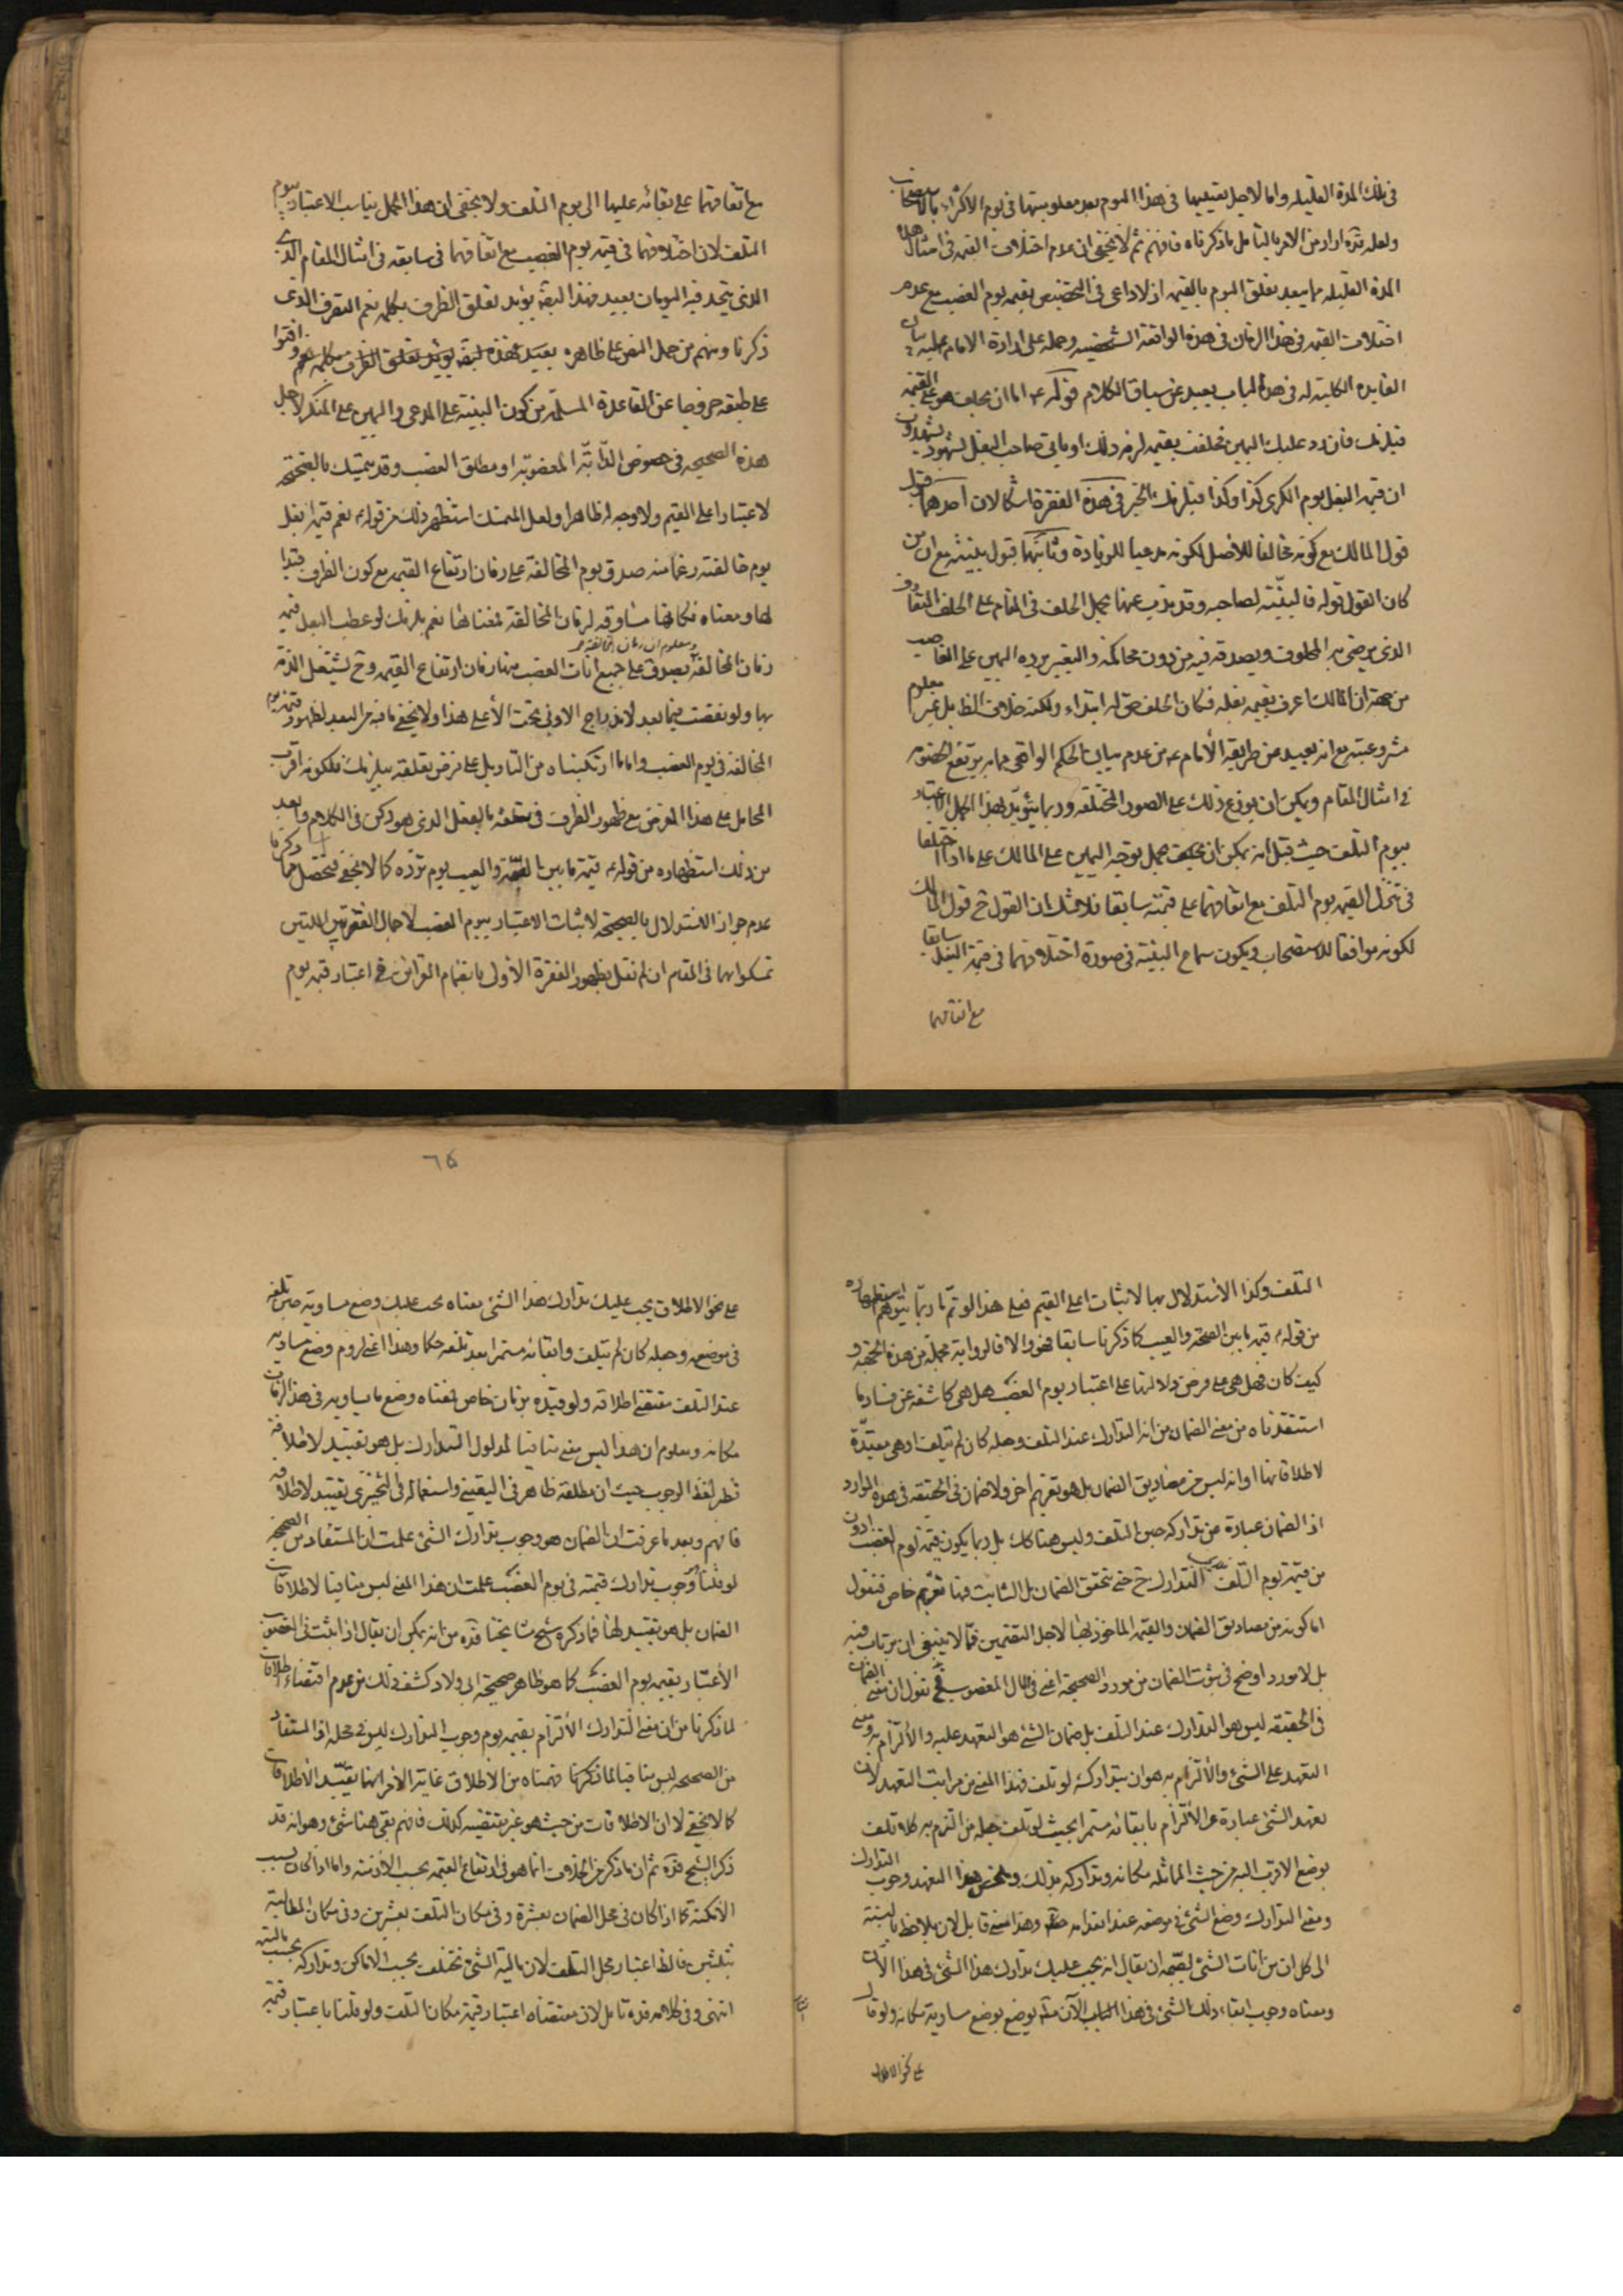 في تلك المدة القليلة واما لاجل تعيينها في هذا اليوم بعد معلوميتها في يوم الاكثراء بالاستصحاب
ولعله قده اراد من الامر بالتامل ما ذكرناه فافهم ثم لا يخفى ان عدم اختلاف القيمة في امثال هذه
المدة القليلة مما يبعد تعلق اليوم بالقيمة اذ لا داعي في التخصيص بقيمة يوم الغصب مع عدم
اختلاف القيمة في هذا الزمان في هذه الواقعة الشخصية وحمله على ارادة الامام عليه بيان
الفايدة الكلية له في هذا الباب بعيد عن سياق الكلام قوله ع اما ان يحلف هو على القيمة
فيلزمك فان رد عليك اليمين فحلفت بقيمة لزمه ذلك او ياتي صاحب البغل بشهود يشهدون
ان قيمة البغل يوم الكرى كذا وكذا فيلزمك الخبر في هذه الفقرة اشكالان احدهما قبول
قول المالك مع كونه مخالفا للاصل لكونه مدعيا للزيادة وثانيهما قبول بينته مع ان من
كان القول قوله فالبينة لصاحبه وقد يذب عنها بحمل الحلف في المقام على الحلف المتعارف
الذي يرضى به المحلوف ويصدقه فيه من دون محاكمة والتعبير برده اليمين على الغاصب
من جهة ان المالك اعرف بقيمة بغله فكان الحلف حق له ابتداء ولكنه خلاف الظ بل غير معلوم
مشروعيته مع انه بعيد من طريقة الأمام ع من عدم بيان الحكم الواقعي مما به يرتفع الخصومة
في امثال المقام ويمكن ان يوزع ذلك على الصور المختلفة وربما يؤيد بهذا الحمل الاعتبار
بيوم التلف حيث قيل انه يمكن ان يحمل توجه اليمين على المالك على ما اذا اختلفا
في تنزل القيمة يوم التلف مع اتفاقهما على قيمته سابقا فلا شك ان القول ح قول المالك
لكونه موافقا للاستصحاب ويكون سماع البينة في صورة اختلافهما في قيمة البغل سابقا
مع اتفاقهما
مع اتفاقهما على بقائه عليها الى يوم التلف ولا يخفى ان هذا الحمل يناسب الاعتبار بيوم
التلف لان اختلافهما في قيمة يوم الغصب مع اتفاقهما في سابقه في امثال المقام الذي
الذي يتحد فيه اليومان بعيد فهذا ايضا يؤيد تعلق الظرف بكلمة نعم التعرف الذي
ذكرنا ومنهم من حمل النص على ظاهره وافتوا
على طبقه خروجا عن القاعدة المسلمة من كون البينة على المدعي واليمين على المنكر لاجل
هذه الصحيحة في خصوص الدابة المغصوبة او مطلق الغصب وقد يتمسك بالصحيحة
لاعتبار اعلى القيم ولا وجه له ظاهرا ولعل المتمسك استظهر ذلك من قوله ع نعم قيمة بغل
يوم خالفته زعما منه صدق يوم المخالفة على زمان ارتفاع القيمة مع كون الظرف قيدا
لها ومعناه فكانها مساوقة لزمان المخالفة فمعناها نعم يلزمك لو عطب البغل قيمة
زمان المخالفة ومعلوم ان زمان المخالفة
يصدق على جميع انات الغصب منها زمان ارتفاع القيمة وح يشتغل الذمة
بها ولو نقصت فيما بعد لاندراج الادنى تحت الأعلى هذا ولا يخفى ما فيه من البعد لظهور قيمة يوم
المخالفة في يوم الغصب واما ما ارتكبناه من التاويل على فرض تعلقه بيلزمك فلكونه اقرب
المحامل على هذا الفرض مع ظهور الظرف في تعلقه بالفعل الذي هو ركن في الكلام وابعد
من ذلك استظهاره من قوله ع قيمة ما بين الصحة والعيب يوم ترده كما لا يخفى فتحصل مما ذكرنا
عدم جواز الاستدلال بالصحيحة لاثبات الاعتبار بيوم الغصب لاجمال الفقرتين اللتين
تمسكوا بهما في المقام ان لم نقل بظهور الفقرة الأولى بانضمام القرائن في اعتبار قيمة يوم
٦٤
التلف وكذا الاستدلال بها لاثبات اعلى القيم فعلى هذا لو تم ما ربما يتوهم استظهاره
من قوله ع قيمة ما بين الصحة والعيب كما ذكرنا سابقا فهو والا فالرواية مجملة من هذه الجهة و
كيف كان فهل هي على فرض دلالتها على اعتبار يوم الغصب هل هي كاشفة عن فساد ما
استفدناه من معنى الضمان من انه التدارك عند التلف وجعله كان لم يتلف او هي مقيدة
لاطلاقاتها او انه ليس من مصاديق الضمان بل هو تغريم اخر ولا ضمان في الحقيقة في هذه الموارد
اذ الضمان عبارة عن تداركه حين التلف وليس هنا كك بل ربما يكون قيمة يوم الغصب ادون
من قيمة يوم التلف فليس التدارك ح حتى يتحقق الضمان بل الثابت فيها تغريم خاص فنقول
اما كونه من مصاديق الضمان والقيمة الماخوذ لها لاجل التضمين فمما لا ينبغي ان يرتاب فيه
بل لا مورد اوضح في ثبوت الضمان من مورد الصحيحة اعني في المال المغصوب فح نقول ان معنى الضمان
في الحقيقة ليس هو التدارك عند التلف بل ضمان الشئ هو التعهد عليه والألتزام به ومعنى
التعهد على الشئ والألتزام به هو ان يتداركه لو تلف فهذا المعنى من مراتب التعهد لان
تعهد الشئ عبارة عن الألتزام بابقائه مستمرا بحيث لو تلف جعله من التزم به كلا تلف
بوضع الاقرب اليه من حيث المماثلة مكانه وتداركه بذلك وملخص هذا التعهد وجوب التدارك
ومعنى التدارك وضع الشئ في موضعه عند انعدامه وهذا معنى قابل لان يلاحظ بالنسبة
الى كل ان من انات الشئ فيصح ان يقال انه يجب عليك تدارك هذا الشئ في هذا الان
ومعناه وجوب ابقاء ذلك الشئ في هذا الان بوضع مساويه مكانه ولو قال
على نحو الاطلاق
على نحو الاطلاق يجب عليك تدارك هذا الشئ معناه يجب عليك وضع مساويه حين تلفه
في موضعه وجعله كان لم يتلف وابقائه مستمرا بعد تلفه حكما وهذا اعني لزوم وضع مساويه
عند التلف مقتضى اطلاقه ولو قيده بزمان خاص فمعناه وضع ما يساويه في هذا الزمان
مكانه ومعلوم ان هذا ليس معنى منافيا لمدلول التدارك بل هو تقييد لاطلاقه
نظير لفظ الوجوب حيث ان مطلقه ظاهر في التعيني واستعماله في التخييري تقييد لاطلاقه
فافهم وبعد ما عرفت ان الضمان هو وجوب تدارك الشئ علمت ان المستفاد من الصحيحة
لو قلنا وجوب تدارك قيمته في يوم الغصب علمت ان هذا المعنى ليس منافيا لاطلاقات
الضمان بل هو تقييد لها فما ذكره شيخ مشايخنا قده من انه يمكن ان يقال اذا ثبت في المغصوب
الأعتبار بقيمة يوم الغصب كما هو ظاهر صحيحة ابي ولاد كشف ذلك عن عدم اقتضاء اطلاقات
لما ذكرنا من ان معنى التدارك الألتزام بقيمة يوم وجوب التدارك ليس في محله اذ المستفاد
من الصحيحة ليس منافيا لما ذكرنا وفهمناه من الاطلاق غاية الأمر انها تقيد الأطلاقات
كما لا يخفى لا ان الاطلاقات من حيث هو غير مقتضية كذلك فافهم بقي هنا شئ وهو انه قد
ذكر الشيخ قده ثم ان ما ذكر من الخلاف انما هو في ارتفاع القيمة بحسب الأزمنة واما اذا كان بسبب
الأمكنة كما اذا كان في محل الضمان بعشرة وفي مكان التلف بعشرين وفي مكان المطالبة
بثلثين فالظ اعتبار محل التلف لان مالية الشئ تختلف بحسب الاماكن وتداركه بحسب ماليته
انتهى وفي كلامه قده تامل لان مقتضاه اعتبار قيمة مكان التلف ولو قلنا باعتبار قيمة